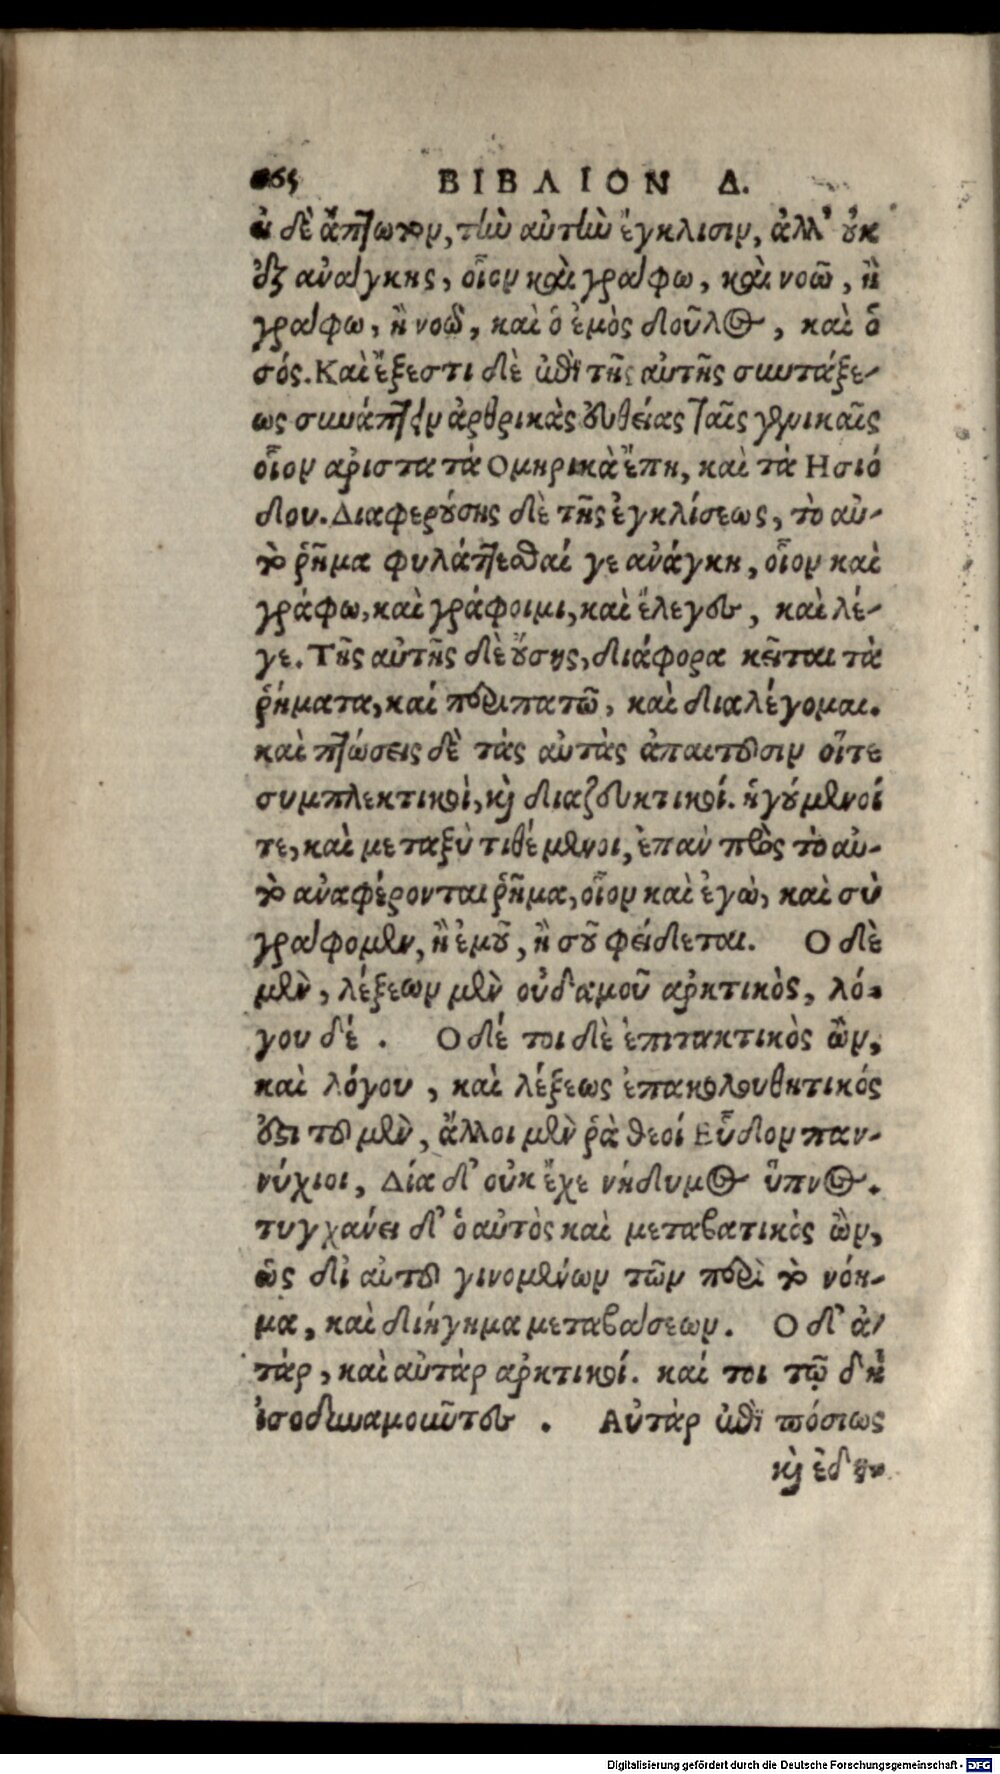 ΒΙΒΛΙΟΝ Δ.
δὲ ἄπτωτον, τὴν αὐτὴν ἔγκλισιν, ἀλλ' οὐκ
ἐξ ἀνάγκης, οἷον καὶ γράφω, καὶ νοῶ, ἢ
γράφω, ἢ νοῶ, καὶ ὁ ἐμὸς δοῦλος, καὶ ὁ
σός. Καὶ ἔξεστι δὲ ἐπὶ τῆς αὐτῆς συντάξε-
ως συνάπτειν ἀρθρικὰς εὐθείας ταῖς γενικαῖς
οἷον αριστα τὰ Ομηρικὰ ἔπη, καὶ τὰ Ησιό
δου. Διαφερούσης δὲ τῆς ἐγκλίσεως, τὸ αὐ-
τὸ ῥῆμα φυλάττεσθαί γε ανάγκη, οἷον καὶ
γράφω, καὶ γράφοιμι, καὶ ἔλεγον, καὶ λέ-
γε. Τῆς αὐτῆς δὲ οὔσης, διάφορα κεῖται τὰ
ῥήματα, καί περιπατῶ, καὶ διαλέγομαι.
καὶ πτώσεις δὲ τὰς αὐτὰς ἀπαιτοῦσιν οἵτε
συμπλεκτικοὶ, καὶ διαζευκτικοί. ἡγούμενοί
τε, καὶ μεταξὺ τιθέμενοι, ἐπαν πρὸς τὸ αὐ-
τὸ αναφέρονται ῥῆμα, οἷον καὶ ἐγὼ, καὶ σὺ
γράφομεν, ἢ ἐμοῦ, ἢ σοῦ φείδεται. Ο δὲ
μὲν, λέξεων μὲν οὐδαμοῦ αρκτικὸς, λό-
γου δέ. Ο δέ τοι δὲ ἐπιτακτικὸς ὢν,
καὶ λόγου, καὶ λέξεως ἐπακολουθητικός
ἐστι τοῦ μὲν, ἄλλοι μὲν ῥὰ θεοί Εὗδον παν-
νύχιοι, Δία δ' οὐκ ἔχε νήδυμος ὕπνος.
τυγχάνει δ' ὁ αὐτὸς καὶ μεταβατικὸς ὢν,
ὡς δι αὐτοῦ γινομένων τῶν περὶ τὸ νόη-
μα, καὶ διήγημα μεταβάσεων. Ο δ' ἀ-
τὰρ, καὶ αὐτὰρ αρκτικοί. καί τοι τῷ δὲ
ἰσοδυναμοῦντες. Αὐτὰρ ἐπὶ πόσιως
καὶ ἐδη-
Digitalisierung gefördert durch die Deutsche Forschungsgemeinschaft - DFG